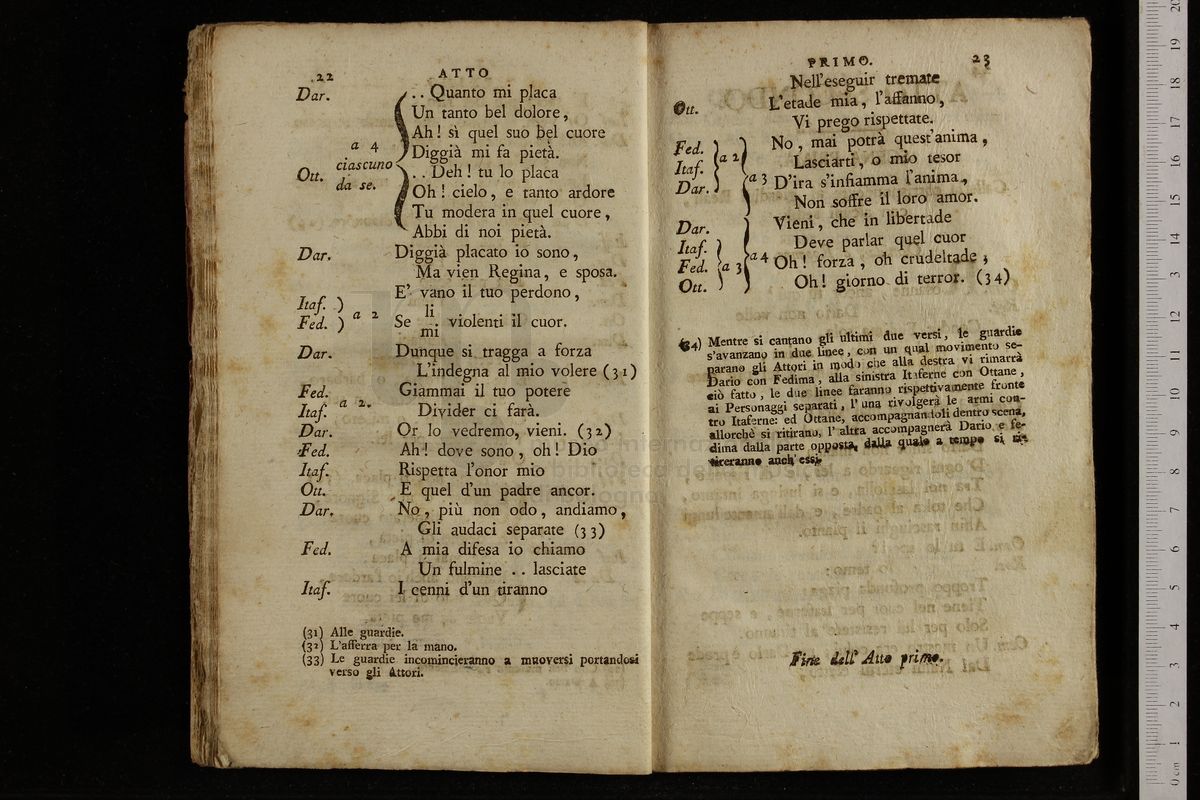 22 ATTO
Dar. .. Quanto mi placa
Un tanto bel dolore,
Ah! sì quel suo bel cuore
a 4 Diggià mi fa pietà.
Ott. ciascuno da se. .. Deh! tu lo placa
Oh! cielo, e tanto ardore
Tu modera in quel cuore,
Abbi di noi pietà.
Dar. Diggià placato io sono,
Ma vien Regina, e sposa.
E' vano il tuo perdono,
Itaf. ) Fed. ) a 2 Se li mi violenti il cuor.
Dar. Dunque si tragga a forza
L'indegna al mio volere (31)
Fed. Giammai il tuo potere
Itaf. a 2. Divider ci farà.
Dar. Or lo vedremo, vieni. (32)
Fed. Ah! dove sono, oh! Dio
Itaf. Rispetta l'onor mio
Ott. E quel d'un padre ancor.
Dar. No, più non odo, andiamo,
Gli audaci separate (33)
Fed. A mia difesa io chiamo
Un fulmine .. lasciate
Itaf. I cenni d'un tiranno
(31) Alle guardie.
(32) L'afferra per la mano.
(33) Le guardie incomincieranno a muoversi portandosi
verso gli Attori.
PRIMO. 23
Nell'eseguir tremate
Ott. L'etade mia, l'affanno,
Vi prego rispettate.
Fed. No, mai potrà quest'anima,
Itaf. a 2 Lasciarti, o mio tesor
Dar. a 3 D'ira s'infiamma l'anima,
Non soffre il loro amor.
Dar. Vieni, che in libertade
Itaf. Deve parlar quel cuor
Fed. a 3 a 4 Oh! forza, oh crudeltade;
Ott. Oh! giorno di terror. (34)
(34) Mentre si cantano gli ultimi due versi, le guardie
s'avanzano in due linee, con un qual movimento se-
parano gli Attori in modo che alla destra vi rimarrà
Dario con Fedima, alla sinistra Itaferne con Ottane,
ciò fatto, le due linee faranno rispettivamente fronte
ai Personaggi separati, l'una rivolgerà le armi con-
tro Itaferne: ed Ottane, accompagnandoli dentro scena,
allorchè si ritirano, l'altra accompagnerà Dario e Fe-
dima dalla parte opposta, dalla quale a tempo si ri-
tireranno anch'essi.
Fine dell' Atto primo.